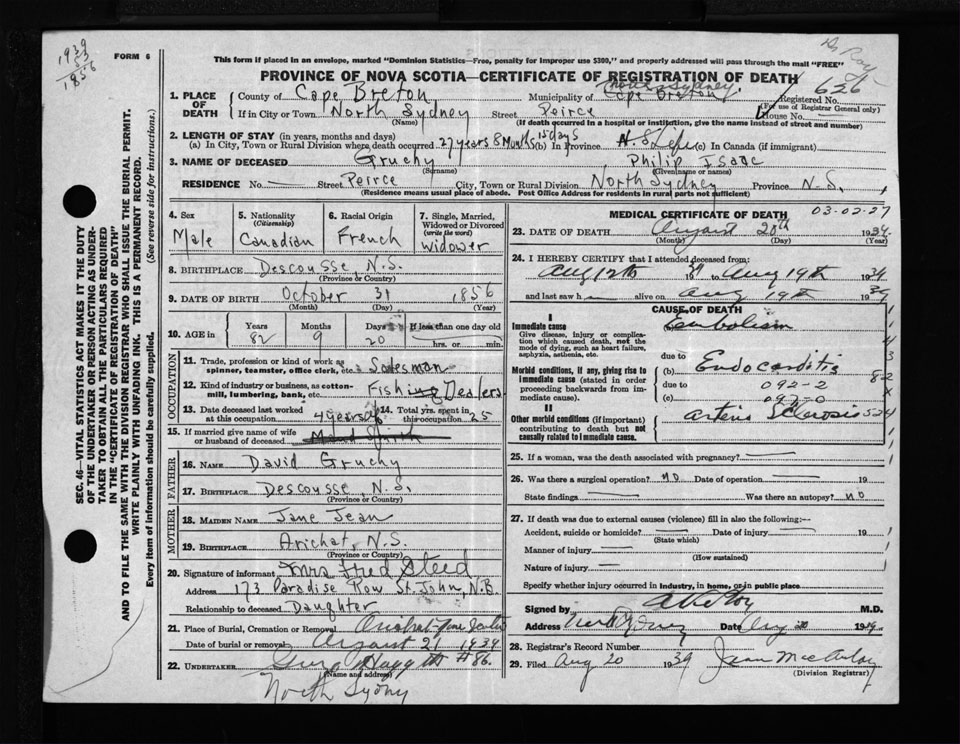 1939
83
1856
FORM 6
This form if placed in an envelope, marked "Dominion Statistics—Free, penalty for improper use $300," and properly addressed will pass through the mail "FREE"
PROVINCE OF NOVA SCOTIA—CERTIFICATE OF REGISTRATION OF DEATH
626
1. PLACE OF DEATH
County of Cape Breton Municipality of Cape Breton North Sydney Registered No.
(For use of Registrar General only)
If in City or Town North Sydney Street Peirce House No. —
(Name) (If death occurred in a hospital or institution, give the name instead of street and number)
2. LENGTH OF STAY (in years, months and days)
(a) In City, Town or Rural Division where death occurred 27 years 8 Months 15 days (b) In Province N.S. Life (c) In Canada (if immigrant)
3. NAME OF DECEASED Gruchy Philip Isaac
(Surname) (Given name or names)
RESIDENCE No. — Street Peirce City, Town or Rural Division North Sydney Province N.S.
(Residence means usual place of abode. Post Office Address for residents in rural parts not sufficient)
4. Sex
Male
5. Nationality
(Citizenship)
Canadian
6. Racial Origin
French
7. Single, Married, Widowed or Divorced
(write the word)
Widower
8. BIRTHPLACE Descousse, N.S.
(Province or Country)
9. DATE OF BIRTH October 31 1856
(Month) (Day) (Year)
10. AGE in Years Months Days If less than one day
82 9 20 hrs. or min.
OCCUPATION
11. Trade, profession or kind of work as spinner, teamster, office clerk, etc. Salesman
12. Kind of industry or business, as cotton-mill, lumbering, bank, etc. Fishing Dealers
13. Date deceased last worked at this occupation 4 years
14. Total yrs. spent in this occupation 25
15. If married give name of wife or husband of deceased
FATHER
16. NAME David Gruchy
17. BIRTHPLACE Descousse, N.S.
(Province or Country)
MOTHER
18. MAIDEN NAME Jane Jean
19. BIRTHPLACE Arichat, N.S.
(Province or Country)
20. Signature of informant Mrs Fred Steed
Address 173 Paradise Row St. John, N.B.
Relationship to deceased Daughter
21. Place of Burial, Cremation or Removal Arichat
Date of burial or removal August 21 1939
22. UNDERTAKER #86.
(Name and address)
North Sydny
MEDICAL CERTIFICATE OF DEATH
03-02-27
23. DATE OF DEATH August 20th 1939
(Month) (Day) (Year)
24. I HEREBY CERTIFY that I attended deceased from:
Aug 12th 39 to Aug 19th 1939
and last saw h alive on Aug 19th 1939
CAUSE OF DEATH
I
Immediate cause
Give disease, injury or complication which caused death, not the mode of dying, such as heart failure, asphyxia, asthenia, etc.
Embolism
due to
Morbid conditions, if any, giving rise to immediate cause (stated in order proceeding backwards from immediate cause).
(b) Endocarditis
due to 092-2
(c) 092-0
II
Other morbid conditions (if important) contributing to death but not causally related to immediate cause.
Arterio Sclerosis
25. If a woman, was the death associated with pregnancy? —
26. Was there a surgical operation? NO Date of operation — 19
State findings — Was there an autopsy? NO
27. If death was due to external causes (violence) fill in also the following:—
Accident, suicide or homicide? — Date of injury — 19
(State which)
Manner of injury —
(How sustained)
Nature of injury —
Specify whether injury occurred in industry, in home, or in public place
Signed by M.D.
Address North Sydney Date Aug 20 1939
28. Registrar's Record Number
29. Filed Aug 20 1939
(Division Registrar)
SEC. 46—VITAL STATISTICS ACT MAKES IT THE DUTY OF THE UNDERTAKER OR PERSON ACTING AS UNDERTAKER TO OBTAIN ALL THE PARTICULARS REQUIRED IN THE "CERTIFICATE OF REGISTRATION OF DEATH" AND TO FILE THE SAME WITH THE DIVISION REGISTRAR WHO SHALL ISSUE THE BURIAL PERMIT.
WRITE PLAINLY WITH UNFADING INK. THIS IS A PERMANENT RECORD.
Every item of information should be carefully supplied. (See reverse side for instructions.)